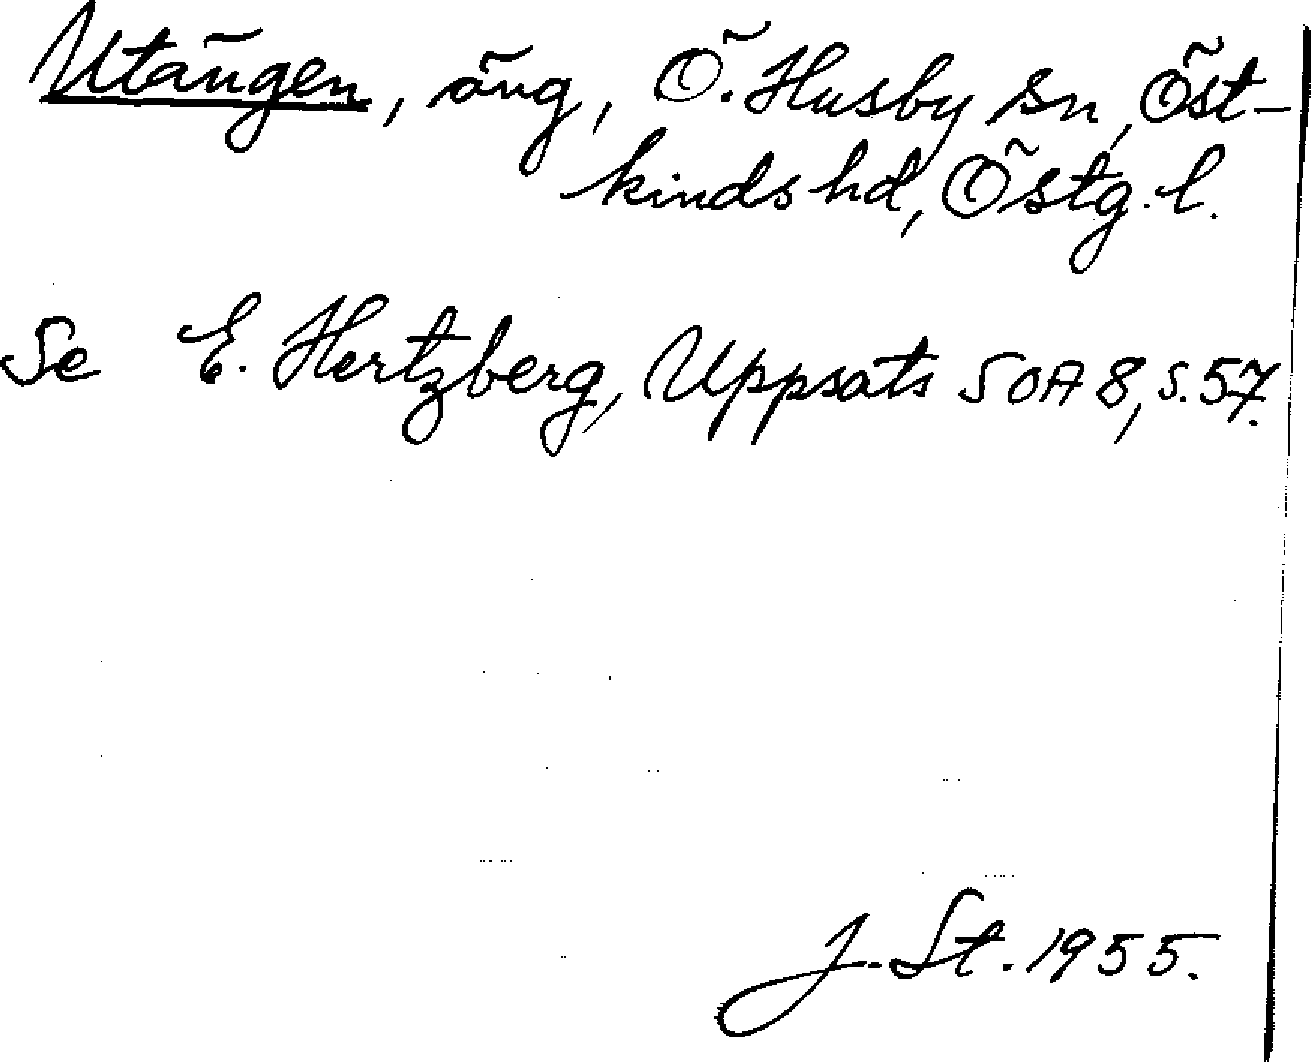 Utängen, äng, Ö. Husby sn, Öst-
kinds hd, Östg. l.
Se E. Hertzberg, Uppsats SOA 8, s. 57.
J. St. 1955.